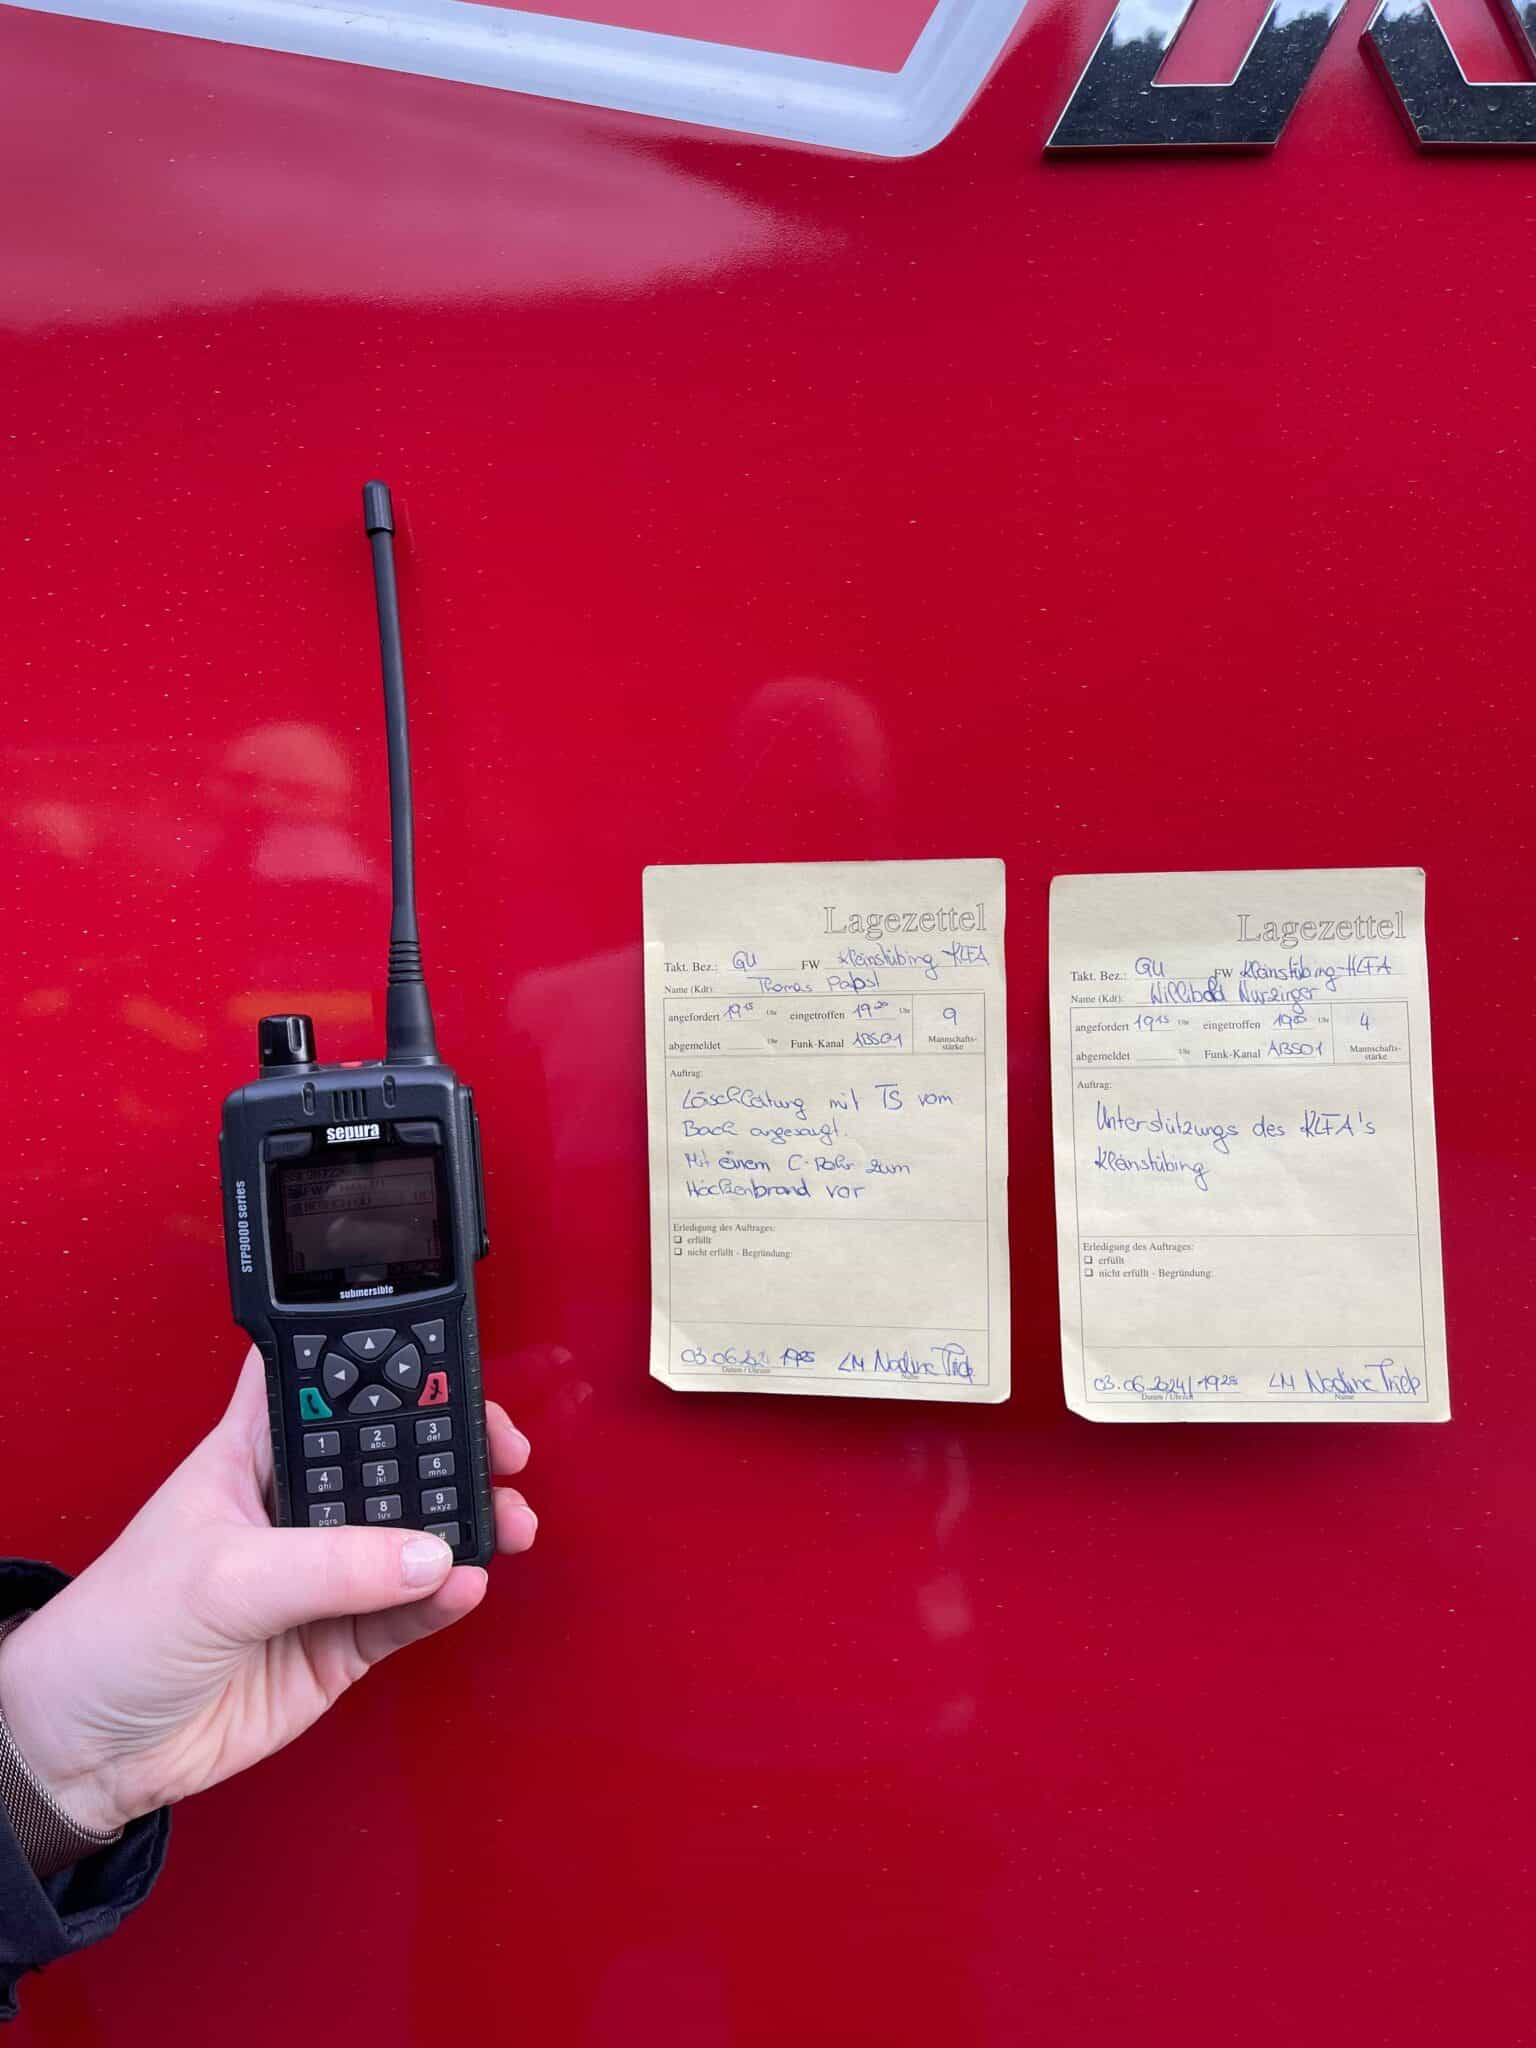 sepura
STP9000 series
submersible
1
2 abc
3 def
4 ghi
5 jkl
6 mno
7 pqrs
8 tuv
9 wxyz
#
Lagezettel
Takt. Bez.: GU FW Kleinstübing KLFA
Name (Kdt): Thomas Papst
angefordert 19 15 Uhr eingetroffen 19 20 Uhr 9
abgemeldet Uhr Funk-Kanal ABS01 Mannschafts-
stärke
Auftrag:
Löschleitung mit TS vom
Bach angesaugt.
Mit einem C-Rohr zum
Heckenbrand vor
Erledigung des Auftrages:
❑ erfüllt
❑ nicht erfüllt - Begründung:
03.06. LM Nadine
Datum / Uhrzeit Name
Lagezettel
Takt. Bez.: GU FW Kleinstübing-HLFA
Name (Kdt): Willibald
angefordert 19 15 Uhr eingetroffen Uhr 4
abgemeldet Uhr Funk-Kanal ABS01 Mannschafts-
stärke
Auftrag:
Unterstützungs des KLFA's
Kleinstübing
Erledigung des Auftrages:
❑ erfüllt
❑ nicht erfüllt - Begründung:
03.06.2024/ 19 28 LM Nadine
Datum / Uhrzeit Name